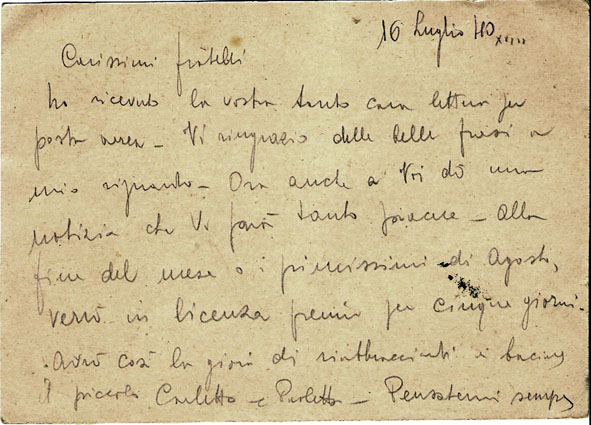 16 Luglio 40 XVIII
Carissimi fratelli
ho ricevuto la vostra tanto cara lettera per
posta aerea - Vi ringrazio delle belle frasi a
mio riguardo - Ora anche a Voi dò una
notizia che Vi farà tanto piacere - alla
fine del mese o i primissimi di Agosto,
verrò in licenza premio per cinque giorni.
Avrò così la gioia di riabbracciarvi e baciare
il piccolo Carletto e - Pensatemi sempre